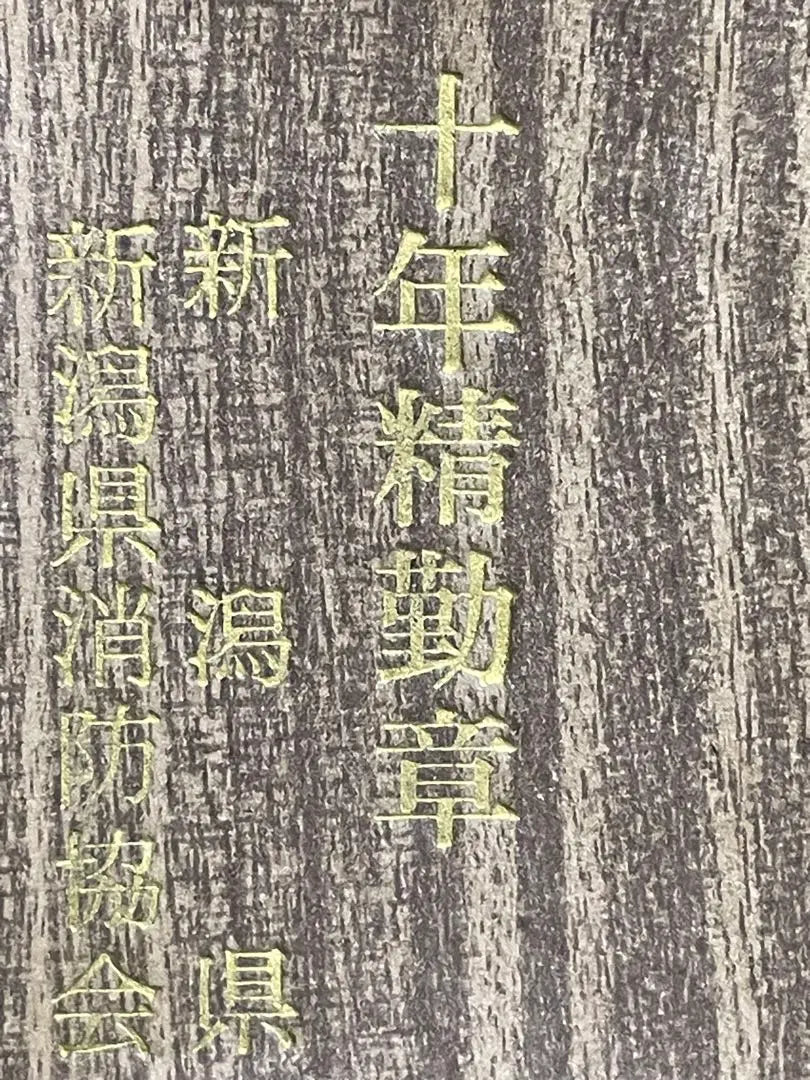 十年精勤章
新潟県
新潟県消防協会